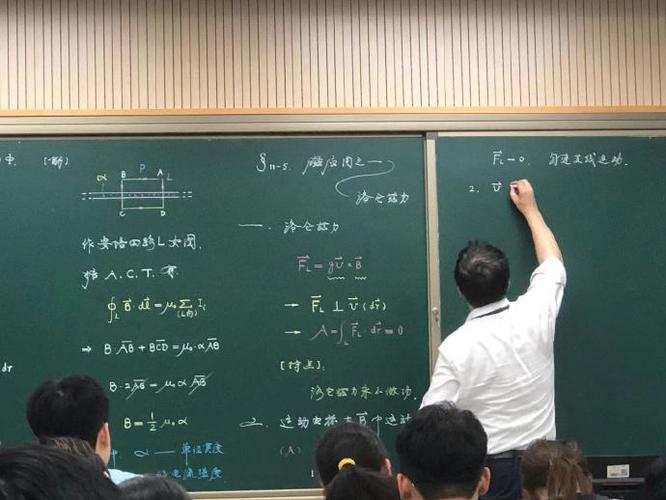 (一解)
P
α B A L
C D
作安培回路L如图,
据 A.C.T.
∮_L B⃗·dl⃗ = μ₀ Σ_(L内) I_i
⇒ B·A̅B̅ + B·C̅D̅ = μ₀·α A̅B̅
B·2A̅B̅ = μ₀ α A̅B̅
B = 1/2 μ₀ α
α — 单位宽度
电流强度
dr
§11-5. 磁力问之一
洛仑兹力
一. 洛仑兹力
F⃗_L = qv⃗×B⃗
→ F⃗_L ⊥ v⃗ (dr⃗)
→ A = ∫_L F⃗_L·dr⃗ = 0
[特点]:
洛仑兹力永不做功.
二. 运动电荷在B⃗中运动
(A)
F⃗_L = 0. 匀速直线运动.
2. v⃗